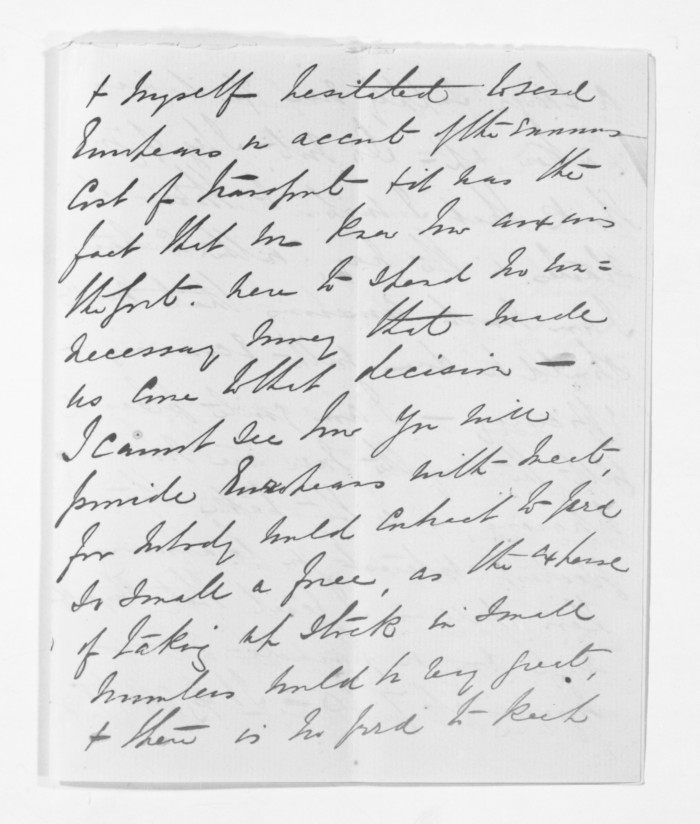 & myself hesitated to send
Europeans on accnt of the enormous
Cost of transport & it was the
fact that we knew how anxious
the Govt. were to spend no un=
necessary money that made
us come to that decision —
I cannot see how you will
provide Europeans with meat,
for nobody would contract to feed
so small a force, as the expense
of taking up stock in small
numbers would be very great,
& there is no food to keep